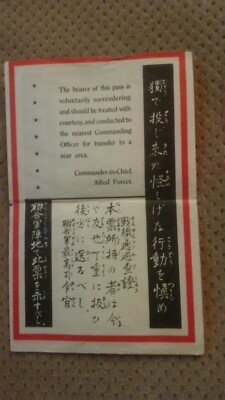 The bearer of this pass is
voluntarily surrendering
and should be treated with
courtesy, and conducted to
the nearest Commanding
Officer for transfer to a
rear area.
Commander-in-Chief,
Allied Forces
獨で投じ来れ怪しげな行動を慎め
本票所持の者は今
や友也丁重に扱ひ
後方に送るべし
聯合軍最高司令官
聯合軍陣地へ此票を示すべし